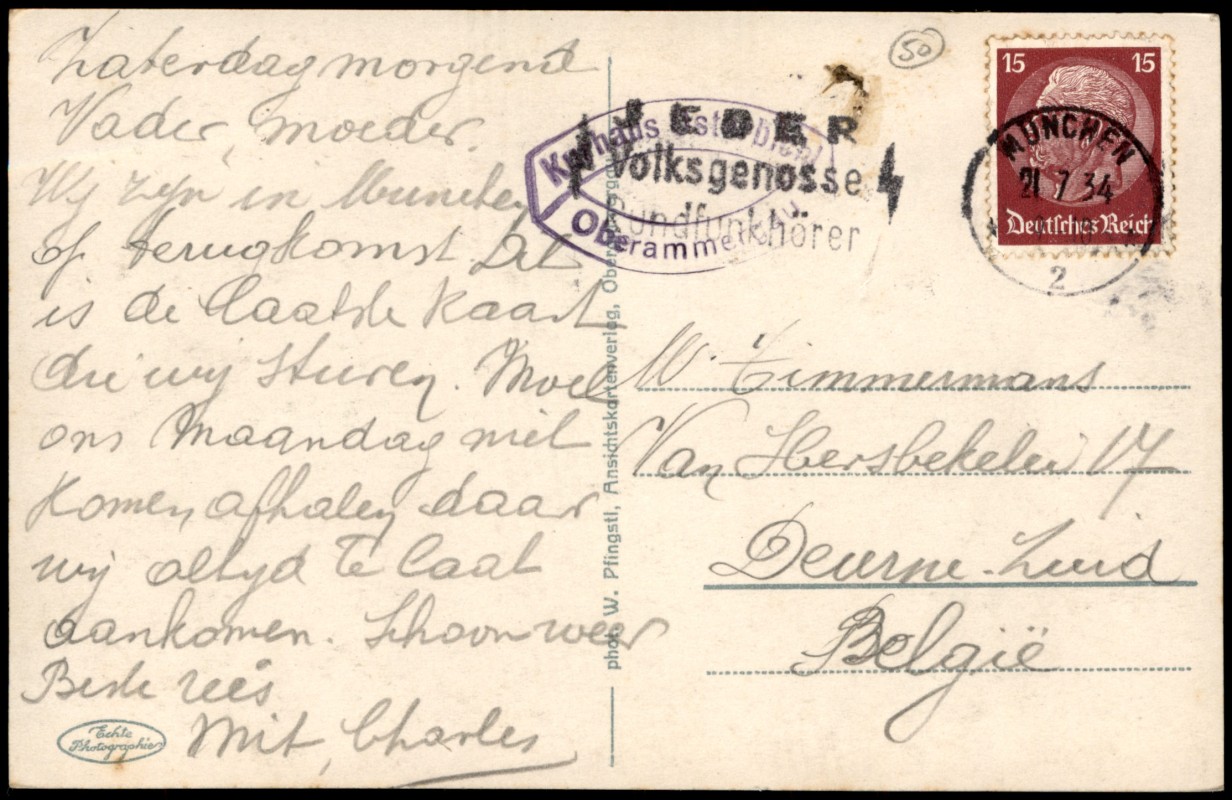 Zaterdag morgend
Vader, moeder.
Wij zijn in Munchen
of terugkomst. Dit
is de laatste kaart
die wij sturen. Moet
ons Maandag niet
komen afhalen daar
wij altijd te laat
aankomen. Schoon weer
Beste reis
Mit, Charles
Echte
Photographie
phot. W. Pfingstl, Ansichtskartenverlag, Oberammergau
50
Kurhaus
Oberammergau
JEDER
Volksgenosse
Rundfunkhörer
15 15
Deutsches Reich
MÜNCHEN
21 7 34
2
Zimmermans
Van Hersbekelei 17
Deurne-Zuid
België